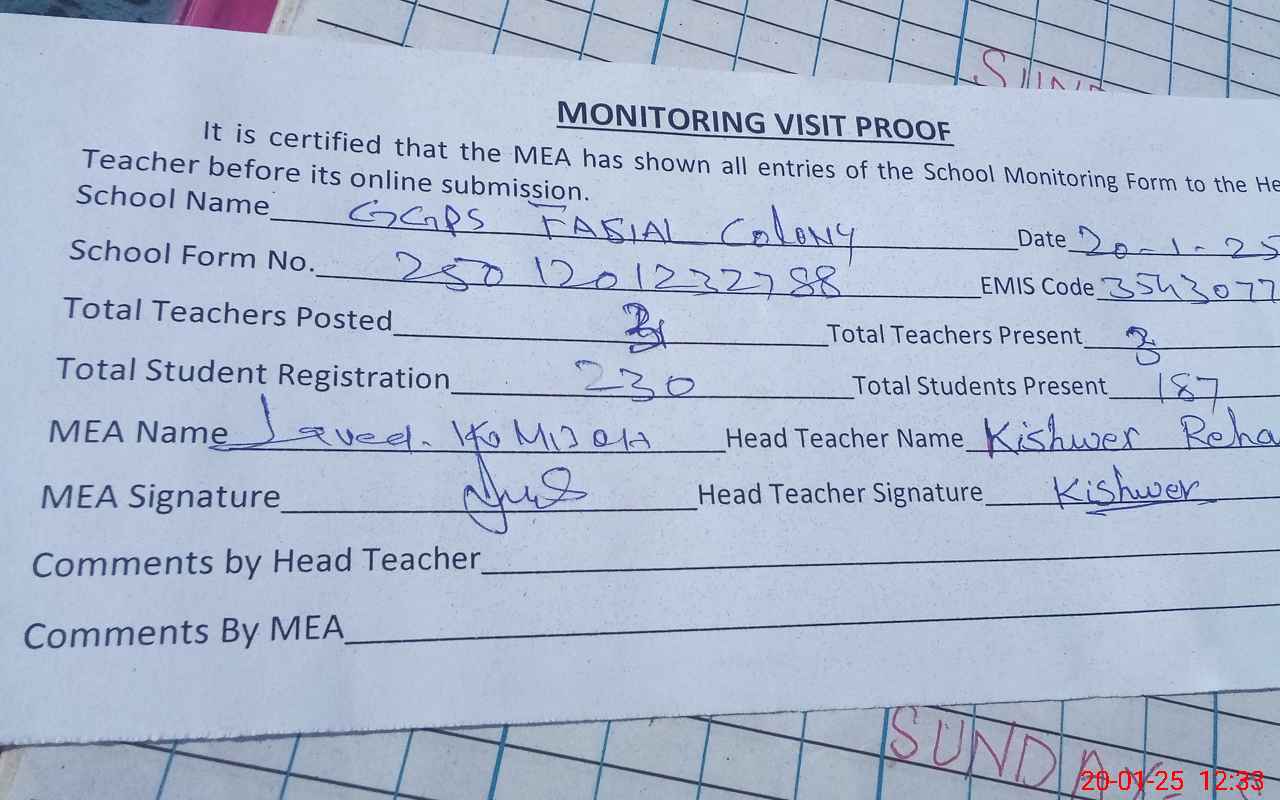 SUND
MONITORING VISIT PROOF
It is certified that the MEA has shown all entries of the School Monitoring Form to the He
Teacher before its online submission.
School Name GGPS FASIAL COLONY Date 20-1-25
School Form No. 2501201232788 EMIS Code 3543077
Total Teachers Posted Total Teachers Present 3
Total Student Registration 230 Total Students Present 187
MEA Name Javed. Head Teacher Name Kishwer Reha
MEA Signature Head Teacher Signature Kishwer
Comments by Head Teacher
Comments By MEA
SUNDAY
20-01-25 12:33